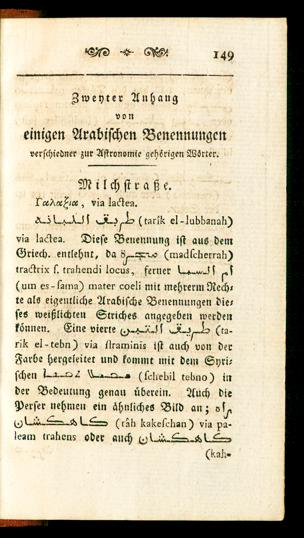 149
Zweyter Anhang
von
einigen Arabischen Benennungen
verschiedner zur Astronomie gehörigen Wörter.
Milchstraße.
Γαλαξια, via lactea.
طريق اللبانه (tarîk el-lubbanah)
via lactea. Diese Benennung ist aus dem
Griech. entlehnt, da مجره (madscherrah)
tractrix s. trahendi locus, ferner ام السما
(um es-sama) mater coeli mit mehrerm Rech-
te als eigentliche Arabische Benennungen die-
ses weißlichten Striches angegeben werden
können. Eine vierte طريق التبن (ta-
rik el-tebn) via straminis ist auch von der
Farbe hergeleitet und kommt mit dem Syri-
schen (schebil tebno) in
der Bedeutung genau überein. Auch die
Perser nehmen ein ähnliches Bild an; راه
كاهكشان (râh kakeschan) via pa-
leam trahens oder auch كاهكشان
(kah-